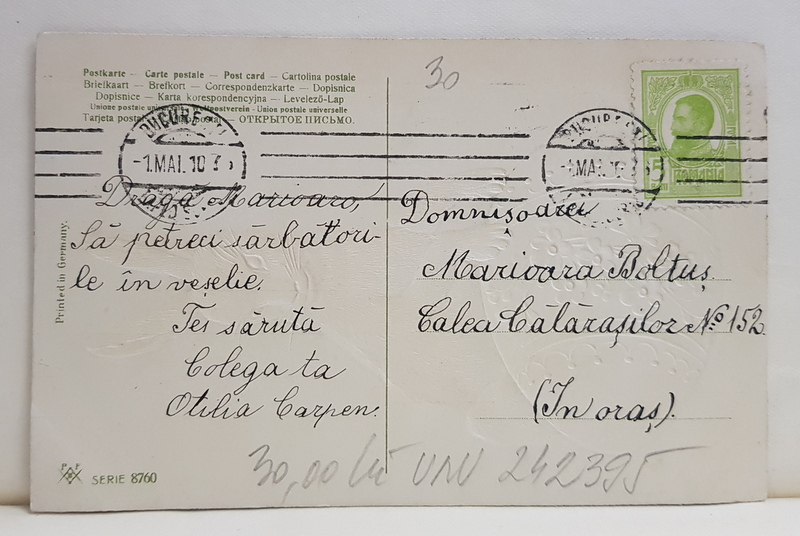 30
Postkarte – Carte postale – Post card – Cartolina postale
Briefkaart – Brefkort – Correspondenzkarte – Dopisnica
Dopisnice – Karta korespondencyjna – Levelező-Lap
Unione postale – Weltpostverein – Union postale universelle
Tarjeta postal – ОТКРЫТОЕ ПИСЬМО.
BUCURESTI
-1.MAI. 10 3
BUCURESTI
-1.MAI. 10 3
Dragă Marioaro,
Să petreci sărbători-
le în veselie.
Tes sărută
Colega ta
Otilia Carpen.
Domnișoarei
Marioara Boltuș.
Calea Călărașilor No. 152.
(In oraș).
Printed in Germany.
P F
SERIE 8760
30,00 lei UNU 242395